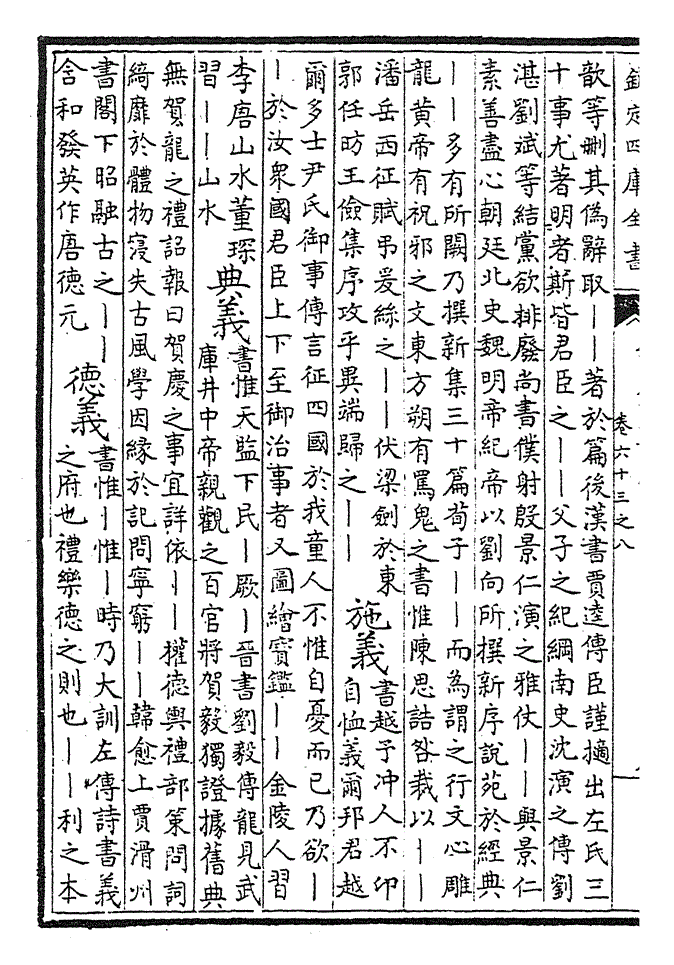 欽定四庫全書
卷六十三之八
歆等删其偽辭取丨丨著於篇後漢書賈逵傳臣謹摘出左氏三
十事尤著明者斯皆君臣之丨丨父子之紀綱南史沈演之傳劉
湛劉斌等結黨欲排廢尚書僕射殷景仁演之雅仗丨丨與景仁
素善盡心朝廷北史魏明帝紀帝以劉向所撰新序說苑於經典
丨丨多有所闕乃撰新集三十篇荀子丨丨而為謂之行文心雕
龍黄帝有祝邪之文東方朔有罵鬼之書惟陳思誥咎裁以丨丨
潘岳西征賦弔爰絲之丨丨伏梁劍於東
郭任昉王儉集序攻乎異端歸之丨丨
施義
書越予冲人不卬
自恤義爾邦君越
爾多士尹氏御事傳言征四國於我童人不惟自憂而已乃欲丨
丨於汝衆國君臣上下至御治事者又圖繪寶鑑丨丨金陵人習
李唐山水董琛
習丨丨山水
典義
書惟天監下民丨厥丨晉書劉毅傳龍見武
庫井中帝親觀之百官將賀毅獨證據舊典
無賀龍之禮詔報曰賀慶之事宜詳依丨丨權德輿禮部策問詞
綺靡於體物寖失古風學因緣於記問寧窮丨丨韓愈上賈滑州
書閣下昭融古之丨丨
含和發英作唐德元
德義
書惟丨惟丨時乃大訓左傳詩書義
之府也禮樂德之則也丨丨利之本